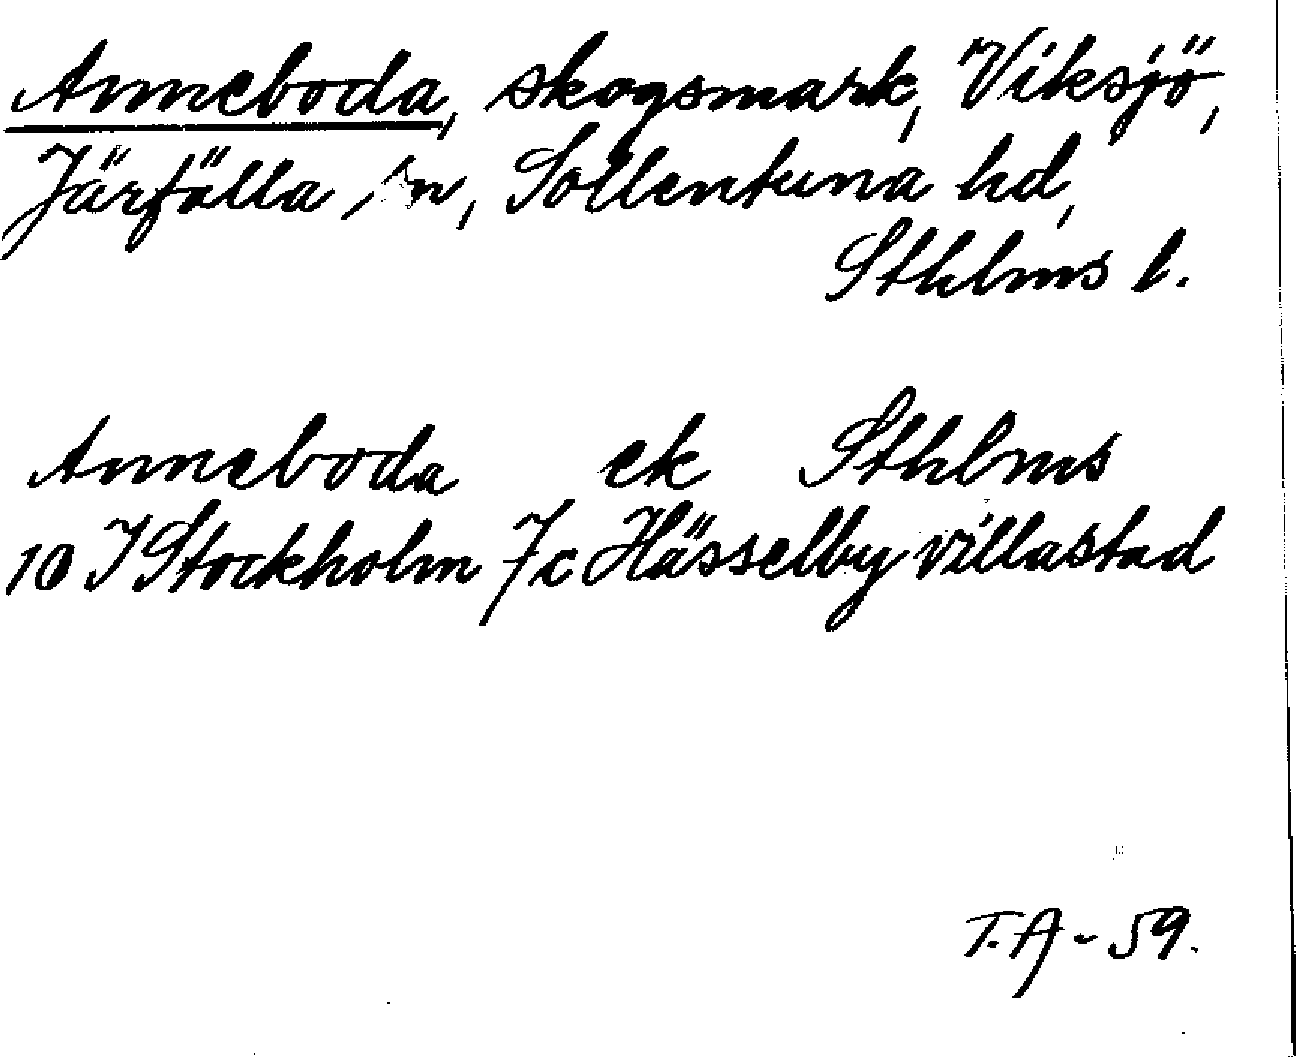 Anneboda, skogsmark, Viksjö,
Järfälla sn, Sollentuna hd,
Sthlms l.
Anneboda ek Sthlms
10 I Stockholm 7c Hässelby villastad
T.A - 59.